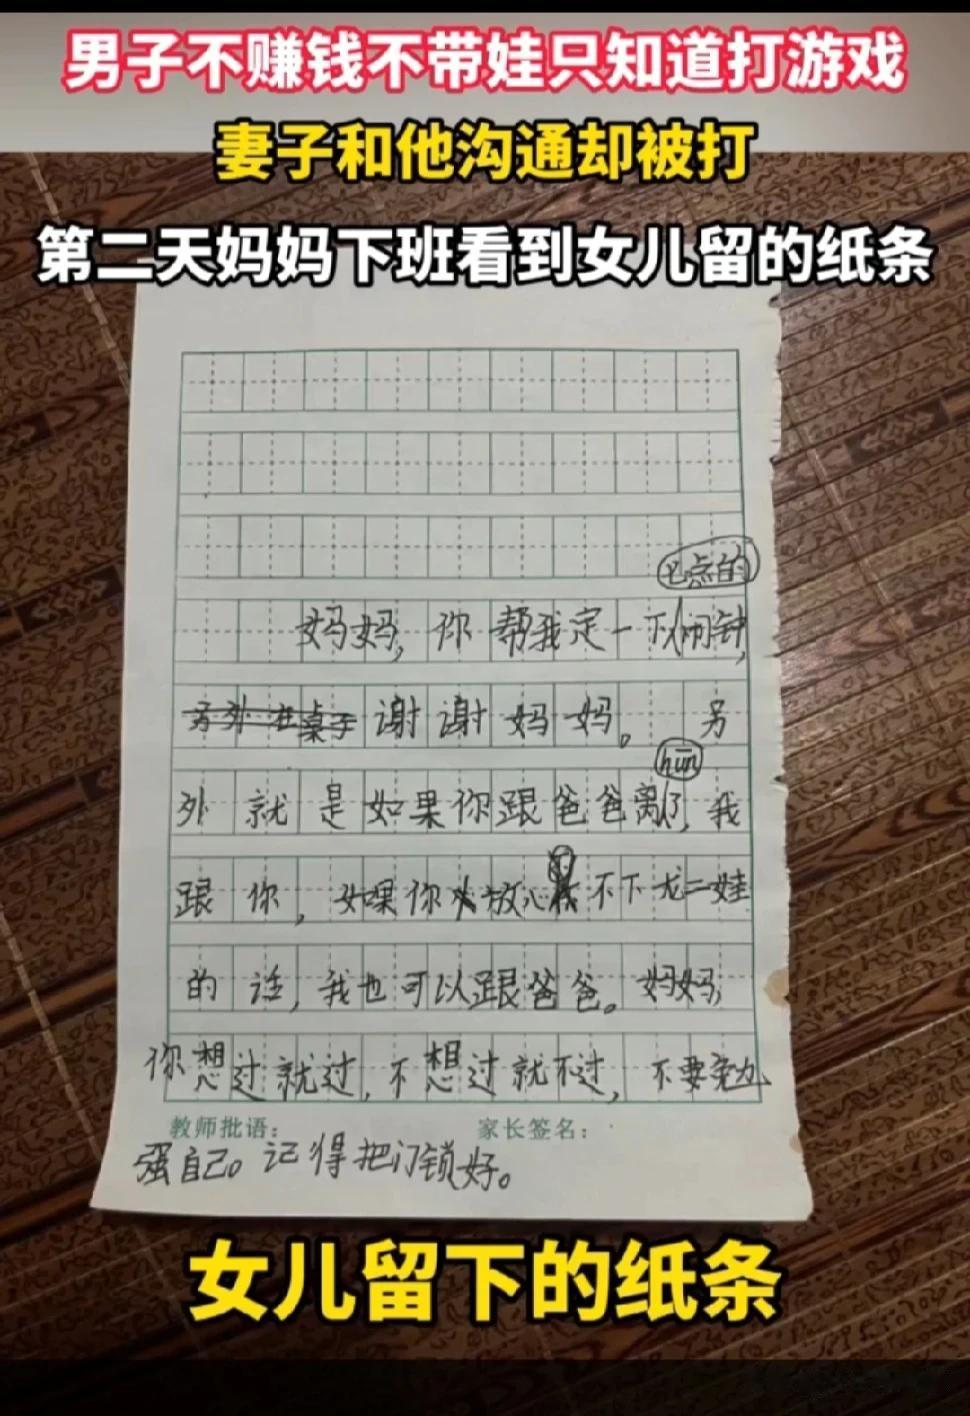 男子不赚钱不带娃只知道打游戏
妻子和他沟通却被打
第二天妈妈下班看到女儿留的纸条
点的
妈妈,你帮我定一下闹钟,
另外在桌子谢谢妈妈。另
hūn
外就是如果你跟爸爸离了,我
跟你,如果你放心不下尤二娃
的话,我也可以跟爸爸。妈妈,
你想过就过,不想过就不过,不要勉
教师批语: 家长签名:
强自己。记得把门锁好。
女儿留下的纸条